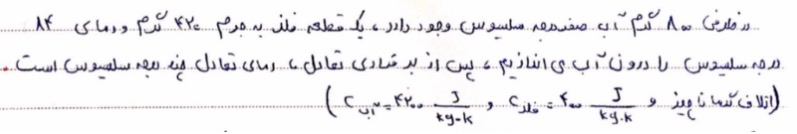 در ظرفی ۸۰۰ گرم آب صفر درجه سلسیوس وجود دارد، یک قطعه فلز به جرم ۴۲۰ گرم و دمای ۸۴
درجه سلسیوس را درون آب می اندازیم، پس از برقراری تعادل، دمای تعادل چند درجه سلسیوس است.
(اتلاف گرما ناچیز و C فلز = ۴۰۰ J/kg.k و C آب = ۴۲۰۰ J/kg-k)